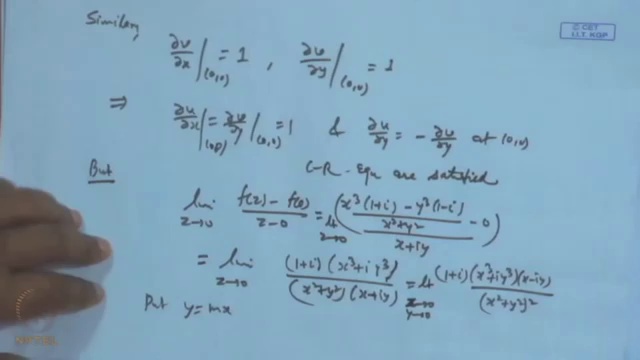 Similarly
© CET
I.I.T. KGP
∂v/∂x |(0,0) = 1 , ∂v/∂y |(0,0) = 1
⇒ ∂u/∂x |(0,0) = ∂v/∂y |(0,0) = 1 & ∂u/∂y = - ∂v/∂y at (0,0)
C-R- Equ are satisfied
But
lim z→0 (f(z) - f(0))/(z-0) = lt z→0 ((x³(1+i) - y³(1-i))/(x²+y²) - 0)/(x+iy)
= lim z→0 (1+i)(x³+iy³)/((x²+y²)(x+iy)) = lt x→0 y→0 (1+i)(x³+iy³)(x-iy)/(x²+y²)²
Put y=mx
NPTEL